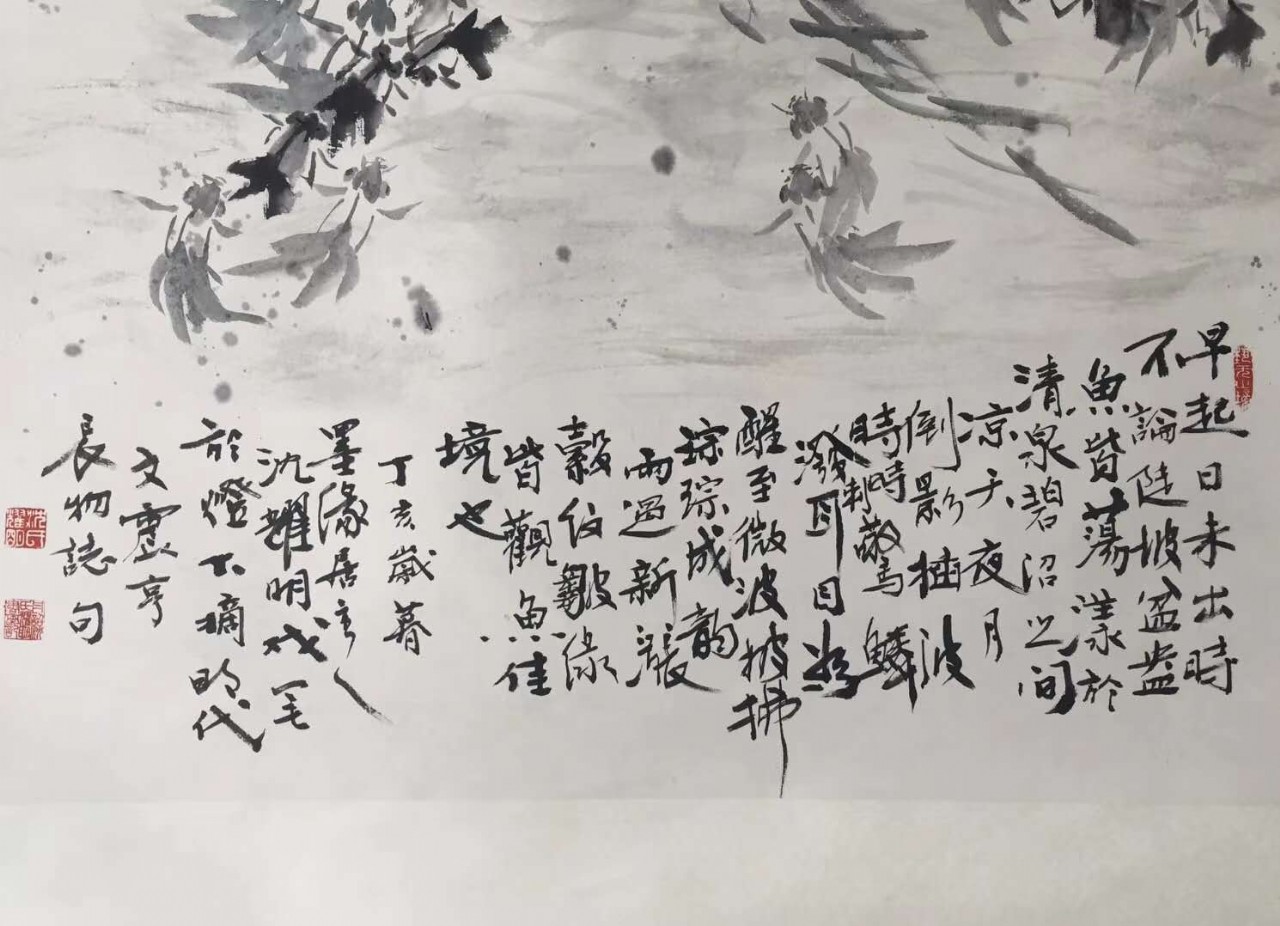 早起日未出時
不論陡坡盆盎
魚皆蕩漾於
清泉碧沼之間
凉天夜月
倒影插波
時時刺驚鱗
潑耳目為
醒至微波披拂
琮琮成韵
雨過新漲
縠紋皺緑
皆觀魚佳
境也
丁亥歲暮
墨緣居主人
沈耀明戏笔
於燈下摘明代
文震亨
長物誌句
沈氏耀明